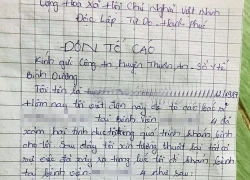 Cộng Hoà Xã Hội Chủ Nghĩa Việt Nam
Độc Lập Tự Do - Hạnh Phúc
ĐƠN TỐ CÁO
Kính gửi Công an huyện Thuận An - Sở Y tế
Bình Dương
Tôi tên là
Hôm nay tôi viết đơn này để tố cáo bác sĩ
tại bệnh viện 4 đã
xâm hại tình dục tôi trong quá trình khám bệnh
cho tôi. Sau đây tôi xin tường thuật lại tất cả
sự việc đã xảy ra trong lúc tôi đi khám bệnh
tại bệnh viện 4 như sau: